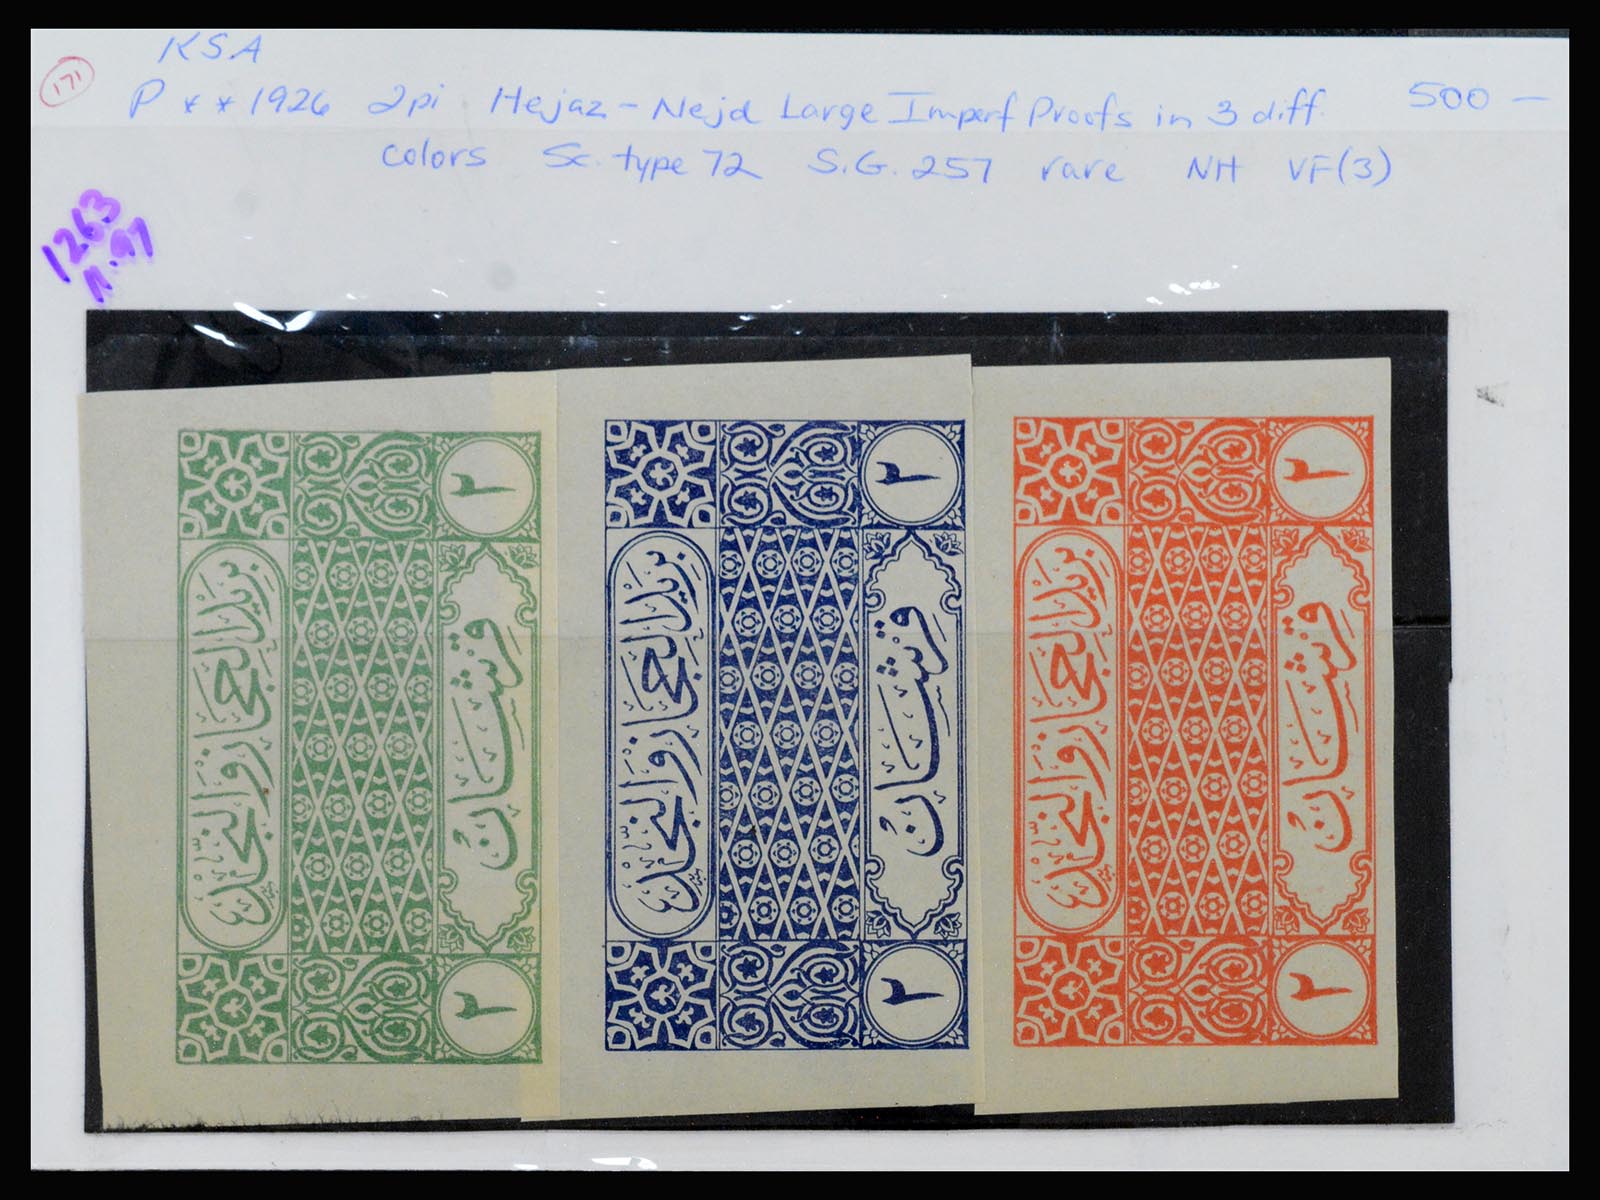 KSA
171
P ** 1926 2pi Hejaz - Nejd Large Imperf Proofs in 3 diff. 500 —
colors Sc. type 72 S.G. 257 rare NH VF(3)
1263
11.97
٢
بريد الحجاز والنجد
قرشان
٢
٢
بريد الحجاز والنجد
قرشان
٢
٢
بريد الحجاز والنجد
قرشان
٢